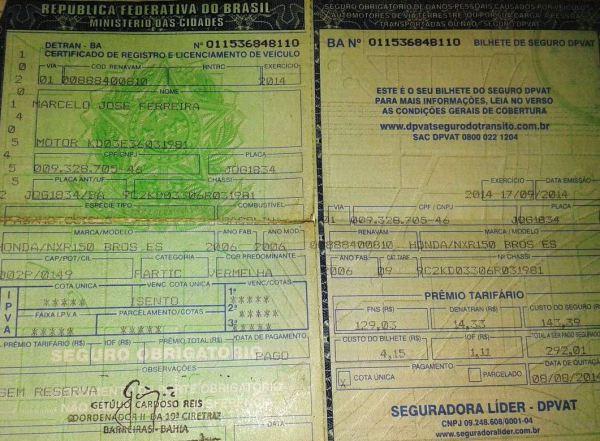 REPÚBLICA FEDERATIVA DO BRASIL
MINISTÉRIO DAS CIDADES
DETRAN - BA Nº 011536848110
CERTIFICADO DE REGISTRO E LICENCIAMENTO DE VEÍCULO
VIA CÓD. RENAVAM RNTRC EXERCÍCIO
01 00888400810 2014
NOME
MARCELO JOSE FERREIRA
MOTOR KD03E36031981
CPF/CNPJ PLACA
009.328.705-46 JOG1834
PLACA ANT/UF CHASSI
JOG1834/BA 9C2KD03306R031981
ESPÉCIE TIPO COMBUSTÍVEL
MARCA/MODELO ANO FAB. ANO MOD.
HONDA/NXR150 BROS ES 2006 2006
CAP/POT/CIL CATEGORIA COR PREDOMINANTE
002P/0149 PARTIC VERMELHA
IPVA
COTA ÚNICA VENC. COTA ÚNICA VENC/COTAS
***** ISENTO 1ª *****
FAIXA I.P.V.A PARCELAMENTO/COTAS 2ª *****
***** ***** 3ª *****
PRÊMIO TARIFÁRIO (R$) IOF (R$) PRÊMIO TOTAL (R$) DATA DE PAGAMENTO
SEGURO OBRIGATÓRIO PAGO
OBSERVAÇÕES
SEM RESERVA
GETÚLIO CARDOSO REIS
COORDENADOR II DA 19ª CIRETRAN
BARREIRAS-BAHIA
DATA
SEGURO OBRIGATÓRIO DE DANOS PESSOAIS CAUSADOS POR VEÍCULOS
AUTOMOTORES DE VIA TERRESTRE, OU POR SUA CARGA, A PESSOAS
TRANSPORTADAS OU NÃO - SEGURO DPVAT
BA Nº 011536848110 BILHETE DE SEGURO DPVAT
ESTE É O SEU BILHETE DO SEGURO DPVAT
PARA MAIS INFORMAÇÕES, LEIA NO VERSO
AS CONDIÇÕES GERAIS DE COBERTURA
www.dpvatsegurodotransito.com.br
SAC DPVAT 0800 022 1204
EXERCÍCIO DATA EMISSÃO
2014 17/09/2014
VIA CPF / CNPJ PLACA
01 009.328.705-46 JOG1834
RENAVAM MARCA / MODELO
00888400810 HONDA/NXR150 BROS ES
ANO FAB. CAT. TARIF. Nº CHASSI
2006 09 9C2KD03306R031981
PRÊMIO TARIFÁRIO
FNS (R$) DENATRAN (R$) CUSTO DO SEGURO (R$)
129,03 14,33 143,39
CUSTO DO BILHETE (R$) IOF (R$) TOTAL A SER PAGO SEGURADO
4,15 1,11 292,01
PAGAMENTO DATA DE QUITAÇÃO
X COTA ÚNICA PARCELADO 08/08/2014
SEGURADORA LÍDER - DPVAT
CNPJ 09.248.608/0001-04
www.seguradoralider.com.br